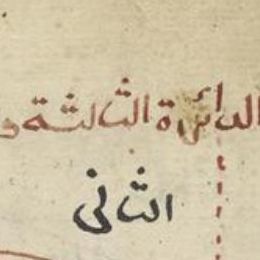 الدائرة الثالثة و
الثانى